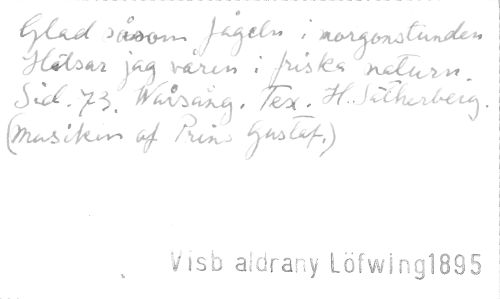 Glad såsom fågeln i morgonstunden
Hälsar jag våren i friska naturn.
Sid. 73. Warsång. Tex. H. Sätherberg.
(Musiken af Prins Gustaf.)
Visb aldrany Löfwing1895